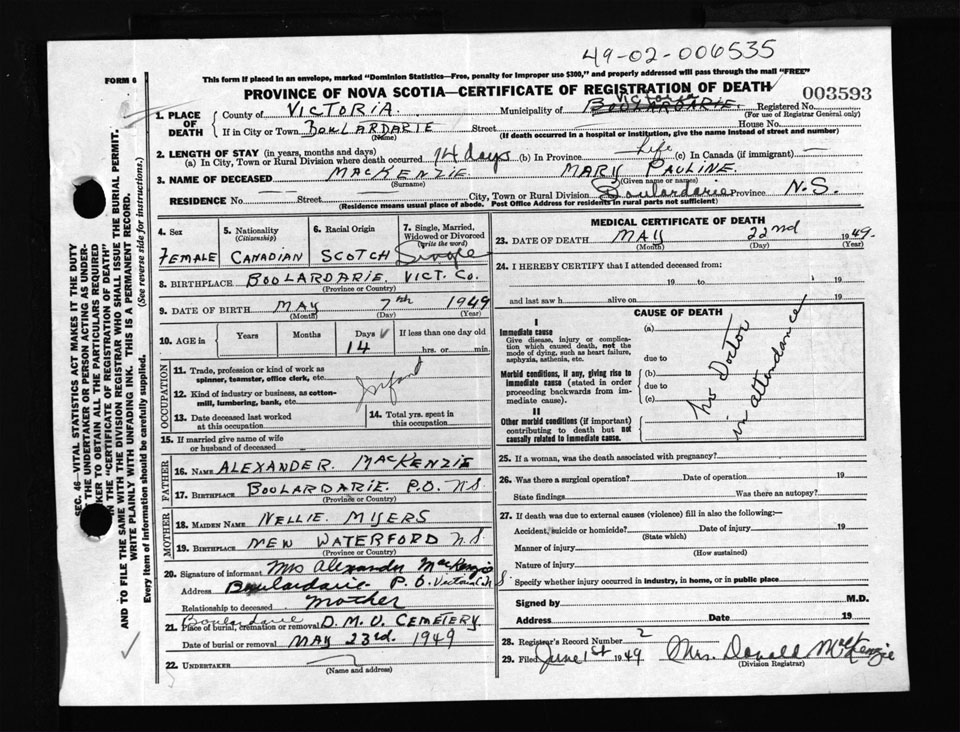 49-02-006535
FORM 6
This form if placed in an envelope, marked "Dominion Statistics—Free, penalty for improper use $300," and properly addressed will pass through the mail "FREE"
PROVINCE OF NOVA SCOTIA—CERTIFICATE OF REGISTRATION OF DEATH
003593
1. PLACE OF DEATH
County of VICTORIA. Municipality of Victoria BOULARDARIE. Registered No.
(For use of Registrar General only)
If in City or Town BOULARDARIE Street House No.
(Name) (If death occurred in a hospital or institution, give the name instead of street and number)
2. LENGTH OF STAY (in years, months and days)
(a) In City, Town or Rural Division where death occurred 14 days (b) In Province Life (c) In Canada (if immigrant) —
3. NAME OF DECEASED MACKENZIE MARY PAULINE.
(Surname) (Given name or names)
RESIDENCE No. — — Street City, Town or Rural Division Boulardarie Province N.S.
(Residence means usual place of abode. Post Office Address for residents in rural parts not sufficient)
4. Sex
FEMALE
5. Nationality
(Citizenship)
CANADIAN
6. Racial Origin
SCOTCH
7. Single, Married, Widowed or Divorced
(write the word)
Single
8. BIRTHPLACE BOOLARDARIE. VICT. CO.
(Province or Country)
9. DATE OF BIRTH MAY 7th 1949
(Month) (Day) (Year)
10. AGE in Years Months Days If less than one day old
14 hrs. or min.
OCCUPATION
11. Trade, profession or kind of work as
spinner, teamster, office clerk, etc.
12. Kind of industry or business, as cotton-
mill, lumbering, bank, etc.
Infant
13. Date deceased last worked
at this occupation
14. Total yrs. spent in
this occupation
15. If married give name of wife
or husband of deceased
FATHER
16. NAME ALEXANDER. MACKENZIE
17. BIRTHPLACE BOOLARDARIE. P.O. N.S.
(Province or Country)
MOTHER
18. MAIDEN NAME NELLIE. MYERS
19. BIRTHPLACE NEW WATERFORD N.S.
(Province or Country)
20. Signature of informant Mrs Alexander MacKenzie
Address Boulardarie P.O. Victoria N S
Relationship to deceased Mother
21. Boulardarie D.M.V. CEMETERY.
Place of burial, cremation or removal
Date of burial or removal MAY 23rd. 1949
22. UNDERTAKER
(Name and address)
MEDICAL CERTIFICATE OF DEATH
23. DATE OF DEATH MAY 22nd 1949.
(Month) (Day) (Year)
24. I HEREBY CERTIFY that I attended deceased from:
19 to 19
and last saw h alive on 19
CAUSE OF DEATH
I
Immediate cause
Give disease, injury or complica-
tion which caused death, not the
mode of dying, such as heart failure,
asphyxia, asthenia, etc.
(a)
due to
Morbid conditions, if any, giving rise to
immediate cause (stated in order
proceeding backwards from im-
mediate cause).
(b)
due to
(c)
II
Other morbid conditions (if important)
contributing to death but not
causally related to immediate cause.
No Doctor
in attendance
25. If a woman, was the death associated with pregnancy?
26. Was there a surgical operation? Date of operation 19
State findings Was there an autopsy?
27. If death was due to external causes (violence) fill in also the following:—
Accident, suicide or homicide? Date of injury 19
(State which)
Manner of injury
(How sustained)
Nature of injury
Specify whether injury occurred in industry, in home, or in public place
Signed by M.D.
Address Date 19
28. Registrar's Record Number 2
29. Filed June 1st 1949 Mrs. Donald MacKenzie
(Division Registrar)
SEC. 46—VITAL STATISTICS ACT MAKES IT THE DUTY
OF THE UNDERTAKER OR PERSON ACTING AS UNDER-
TAKER TO OBTAIN ALL THE PARTICULARS REQUIRED
IN THE "CERTIFICATE OF REGISTRATION OF DEATH"
AND TO FILE THE SAME WITH THE DIVISION REGISTRAR WHO SHALL ISSUE THE BURIAL PERMIT.
WRITE PLAINLY WITH UNFADING INK. THIS IS A PERMANENT RECORD.
Every item of information should be carefully supplied. (See reverse side for instructions.)